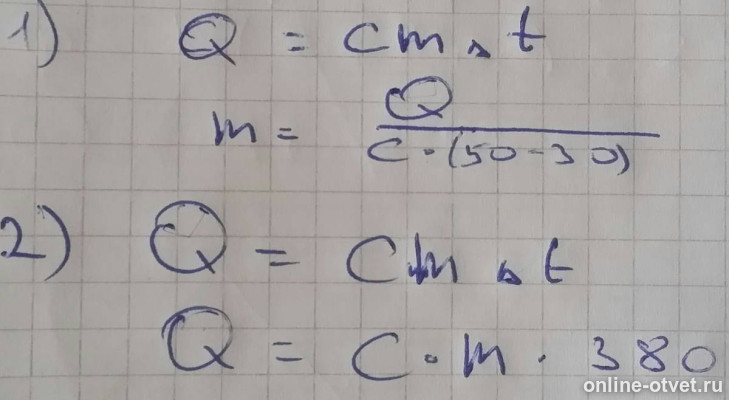 1) Q = cm▵t
m = Q / c·(50-30)
2) Q = cm▵t
Q = c·m·380
online-otvet.ru